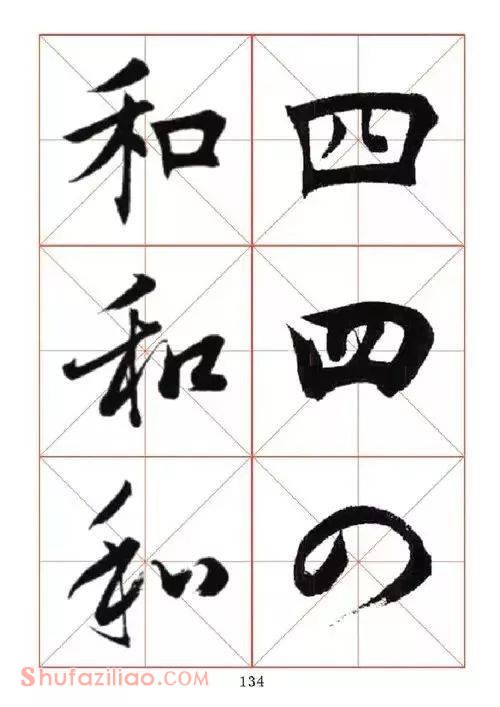 和 四
和 四
和 四
Shufaziliao.com 134